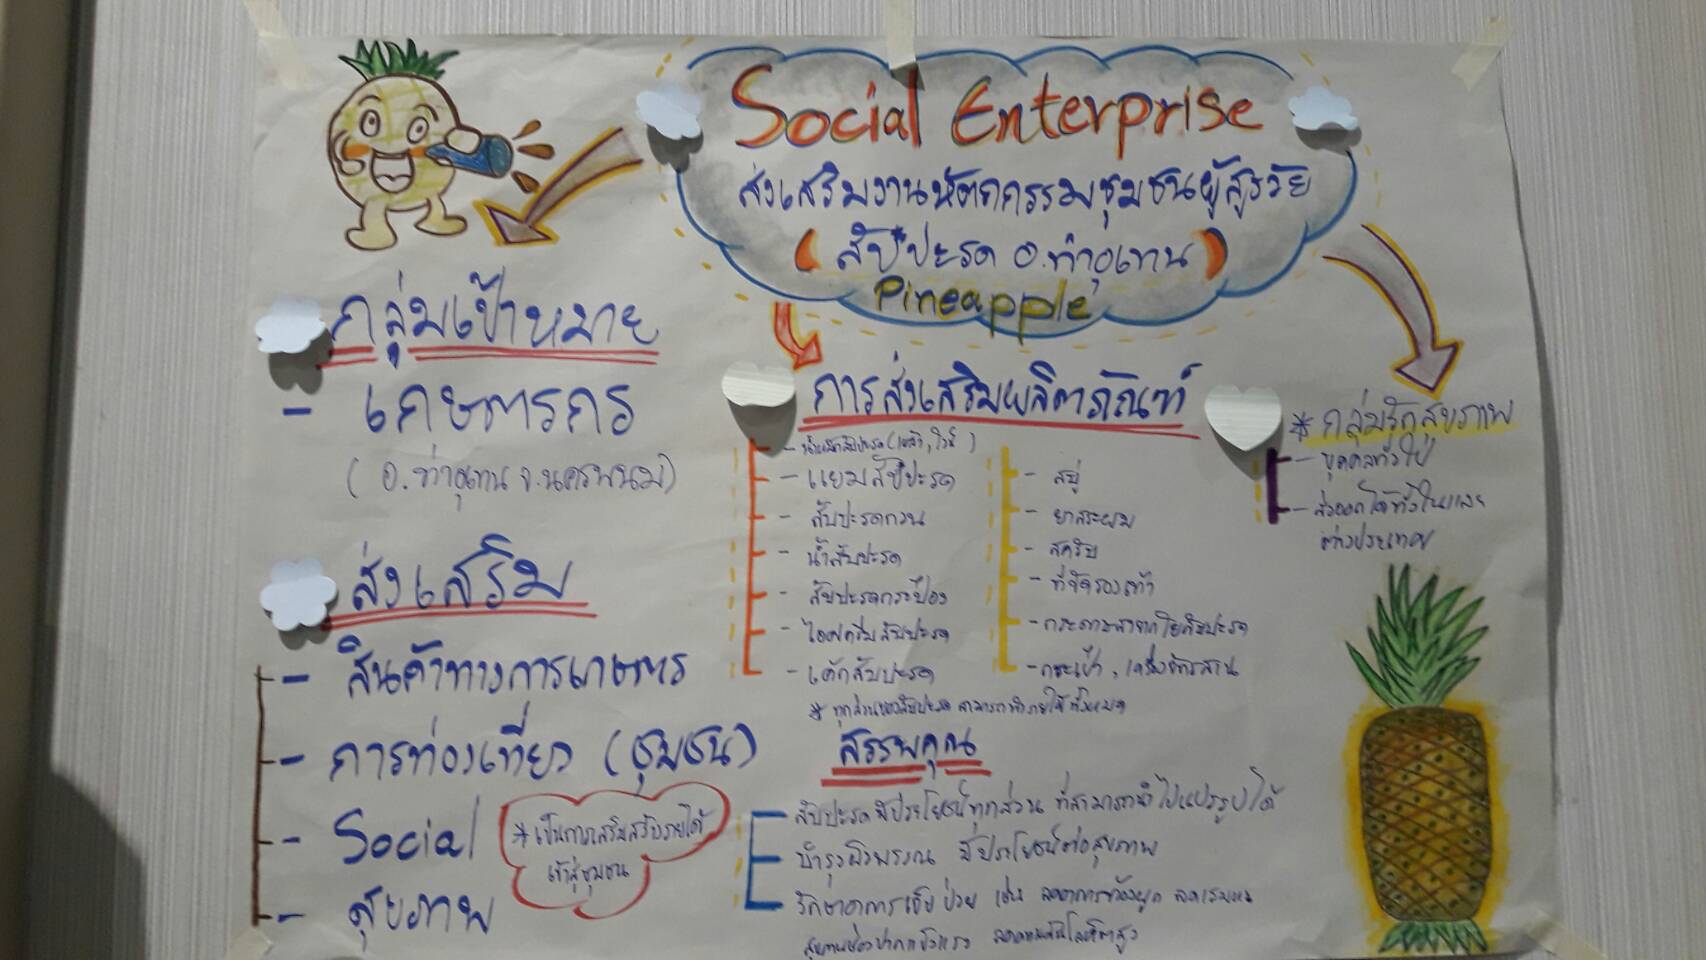 Social Enterprise
ส่งเสริมงานหัตถกรรมชุมชนผู้สูงวัย
(สับปะรด อ.ท่าอุเทน)
Pineapple
กลุ่มเป้าหมาย
- เกษตรกร
(อ.ท่าอุเทน จ.นครพนม)
ส่งเสริม
- สินค้าทางการเกษตร
- การท่องเที่ยว (ชุมชน)
- Social
- สุขภาพ
* เป็นการเสริมสร้างรายได้
เข้าสู่ชุมชน
การส่งเสริมผลิตภัณฑ์
- น้ำหมักสับปะรด (เหล้า, ไวน์)
- แยมสับปะรด
- สับปะรดกวน
- น้ำสับปะรด
- สับปะรดกระป๋อง
- ไอศครีมสับปะรด
- เค้กสับปะรด
- สบู่
- ยาสระผม
- สครับ
- ที่ขัดรองเท้า
- กระดาษสาจากใยสับปะรด
- กระเป๋า, เครื่องจักสาน
* ทุกส่วนของสับปะรด สามารถทำรายได้ทั้งหมด
* กลุ่มรักสุขภาพ
- บุคคลทั่วไป
- ส่งออกได้ทั้งในและ
ต่างประเทศ
สรรพคุณ
สับปะรดมีประโยชน์ทุกส่วน ที่สามารถนำไปแปรรูปได้
บำรุงผิวพรรณ มีประโยชน์ต่อสุขภาพ
รักษาอาการเจ็บป่วย เช่น ลดอาการท้องผูก ลดเสมหะ
สุขภาพช่องปากแข็งแรง ลดความดันโลหิตสูง